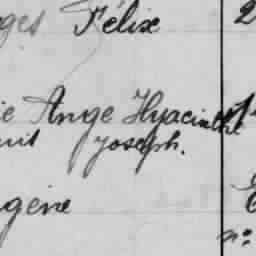 ges Félix 2
ie Ange Hyacinthe 1
uit Joseph.
gène
no